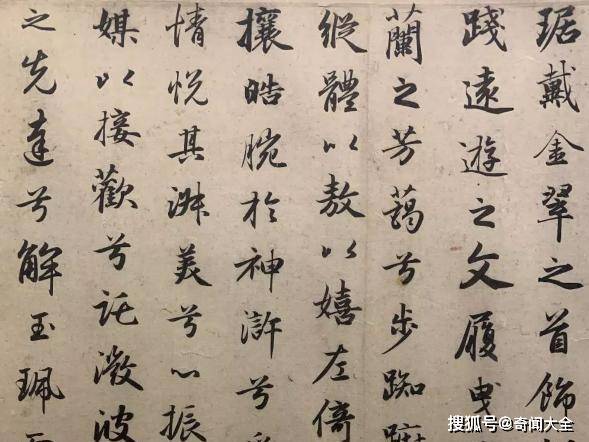 琚戴金翠之首飾
踐遠遊之文履曳
蘭之芳藹兮步踟
縱體以敖以嬉左倚
攘皓腕於神滸兮
情悦其淑美兮心振
媒以接歡兮託微波
之先達兮解玉珮
搜狐号@奇闻大全